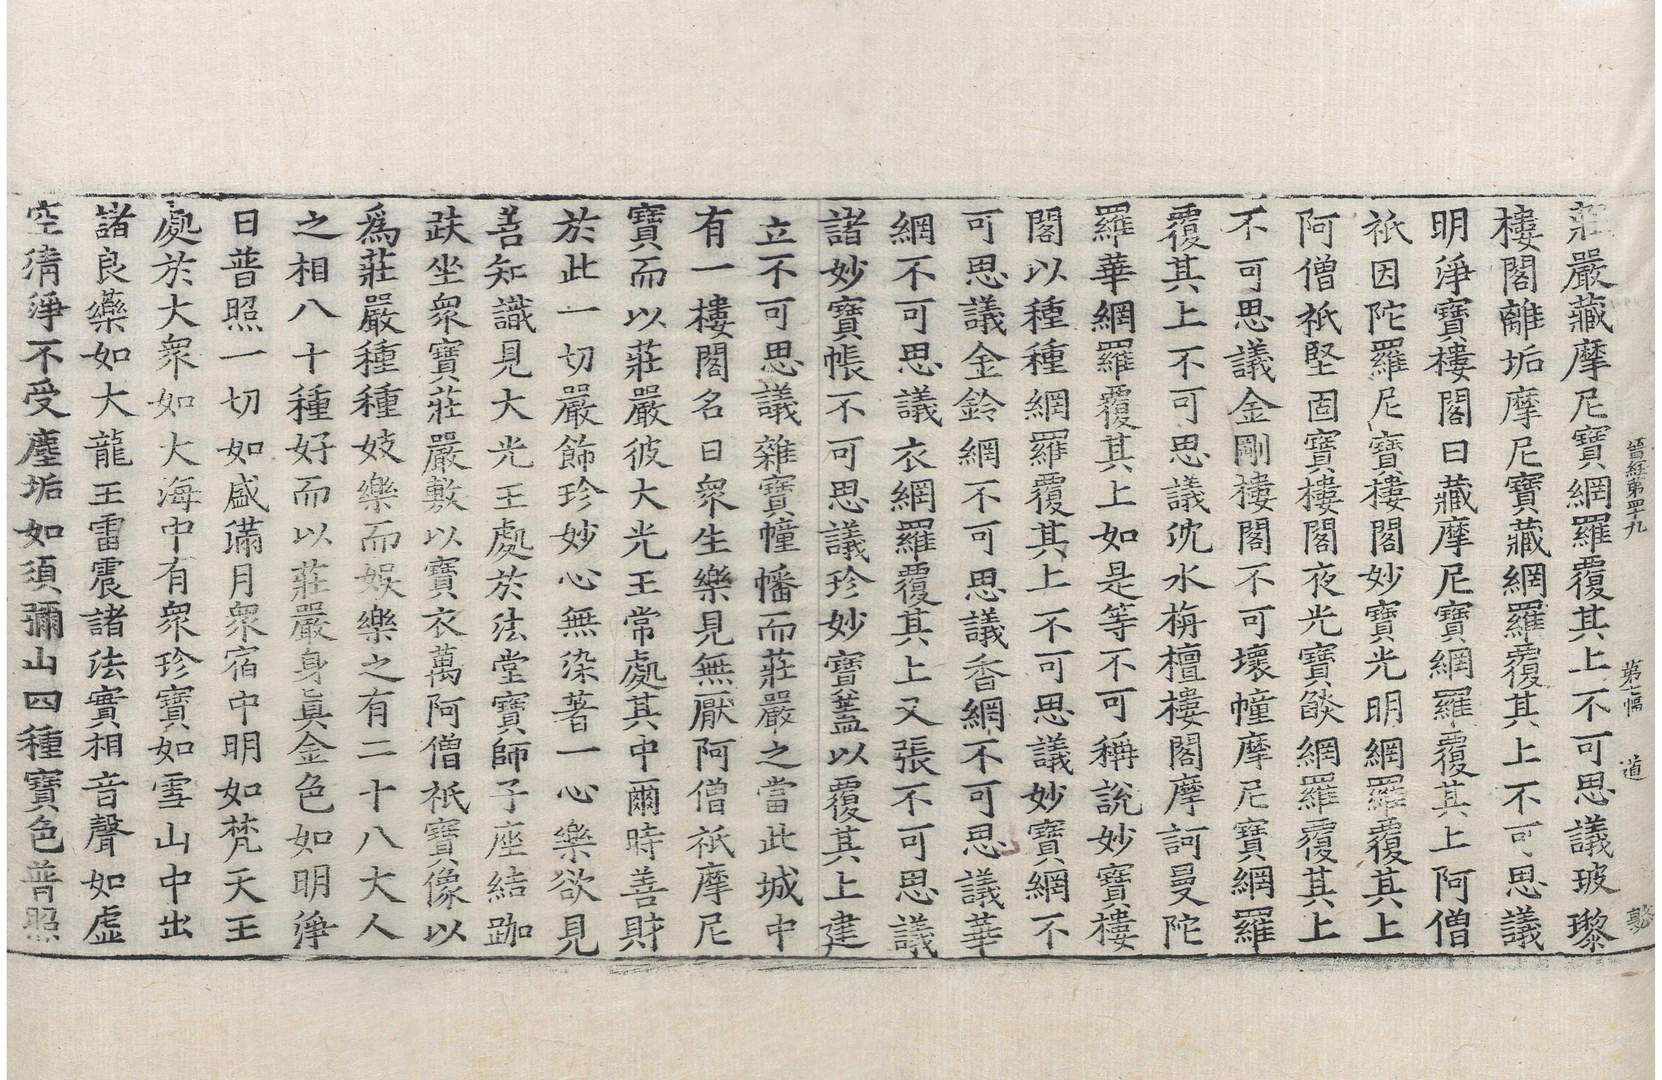 晉經第四十九　第七幅　道
莊嚴藏摩尼寶網羅覆其上不可思議玻瓈
樓閣離垢摩尼寶藏網羅覆其上不可思議
明淨寶樓閣曰藏摩尼寶網羅覆其上阿僧
祇因陀羅尼寶樓閣妙寶光明網羅覆其上
阿僧祇堅固寶樓閣夜光寶燄網羅覆其上
不可思議金剛樓閣不可壞幢摩尼寶網羅
覆其上不可思議沈水栴檀樓閣摩訶曼陀
羅華網羅覆其上如是等不可稱說妙寶樓
閣以種種網羅覆其上不可思議妙寶網不
可思議金鈴網不可思議香網不可思議華
網不可思議衣網羅覆其上又張不可思議
諸妙寶帳不可思議珍妙寶蓋以覆其上建
立不可思議雜寶幢幡而莊嚴之當此城中
有一樓閣名曰衆生樂見無厭阿僧祇摩尼
寶而以莊嚴彼大光王常處其中爾時善財
於此一切嚴飾珍妙心無染著一心樂欲見
善知識見大光王處於法堂寶師子座結跏
趺坐衆寶莊嚴敷以寶衣萬阿僧祇寶像以
爲莊嚴種種妓樂而娛樂之有二十八大人
之相八十種好而以莊嚴身眞金色如明淨
日普照一切如盛滿月衆宿中明如梵天王
處於大衆如大海中有衆珍寶如雪山中出
諸良藥如大龍王雷震諸法實相音聲如虛
空清淨不受塵垢如須彌山四種寶色普照